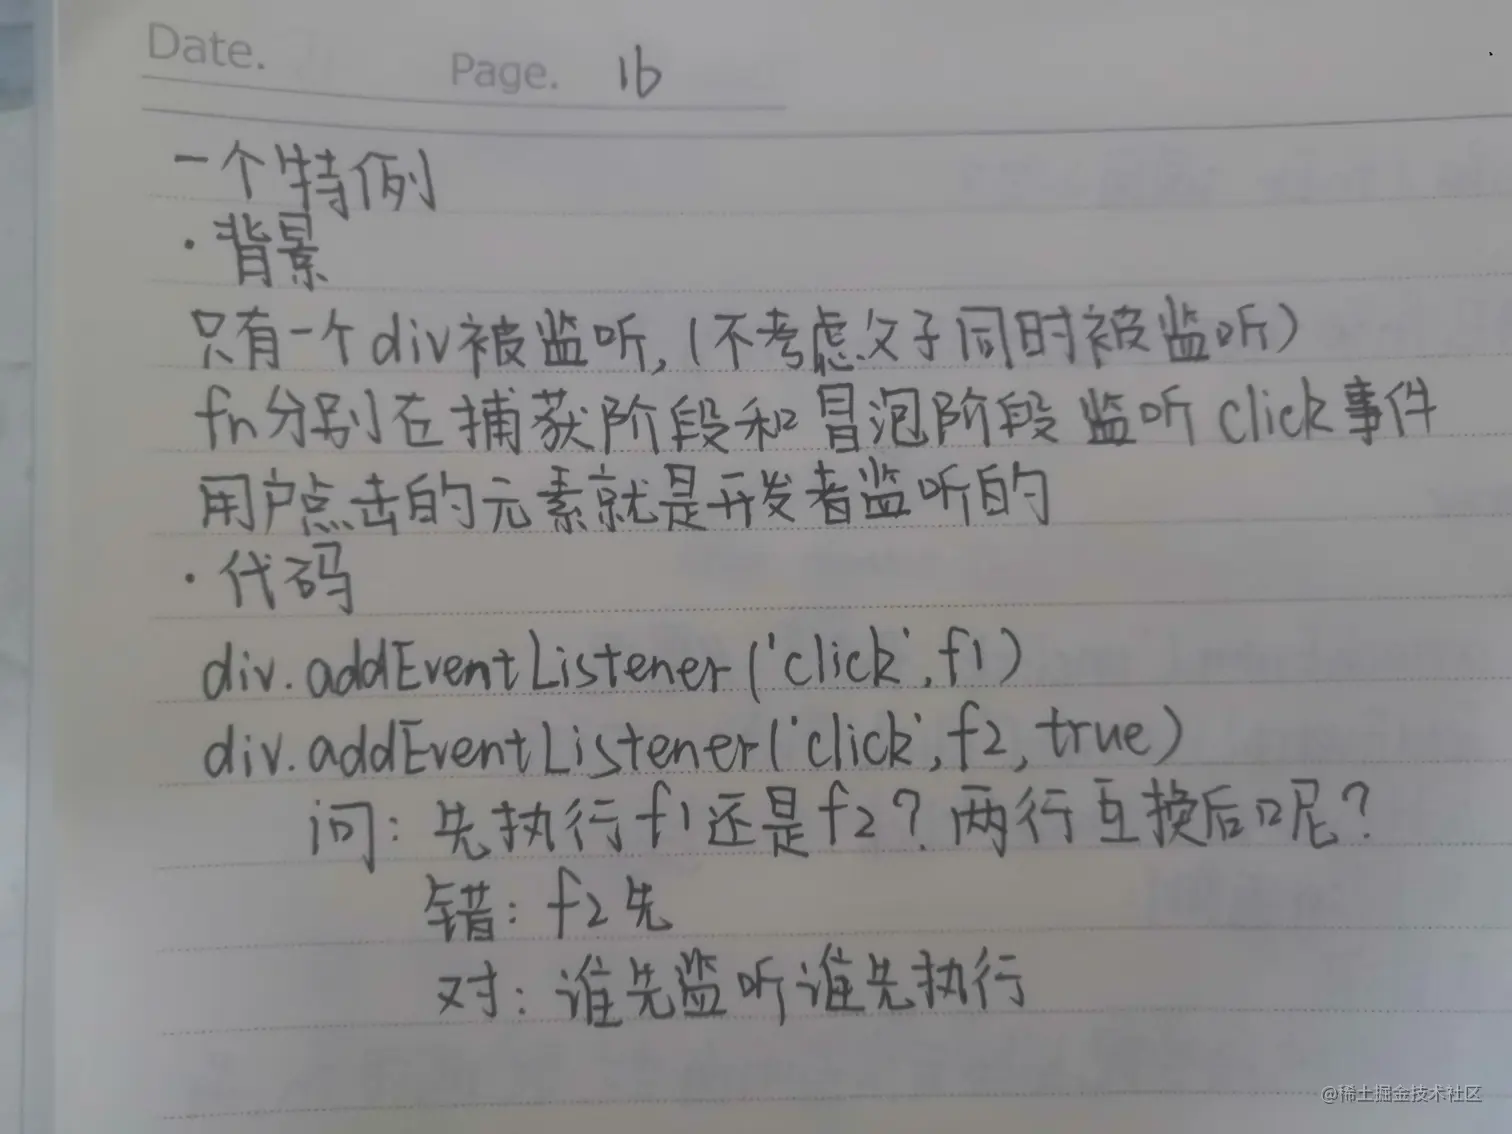 Date.
Page. 16
一个特例
·背景
只有一个div被监听,(不考虑父子同时被监听)
fn分别在捕获阶段和冒泡阶段监听click事件
用户点击的元素就是开发者监听的
·代码
div.addEventListener('click',f1)
div.addEventListener('click',f2,true)
问:先执行f1还是f2?两行互换后呢?
错:f2先
对:谁先监听谁先执行
@稀土掘金技术社区